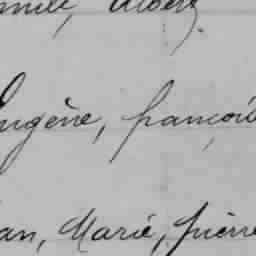 Albert.
Eugène, françois
Jean, Marie, pierre